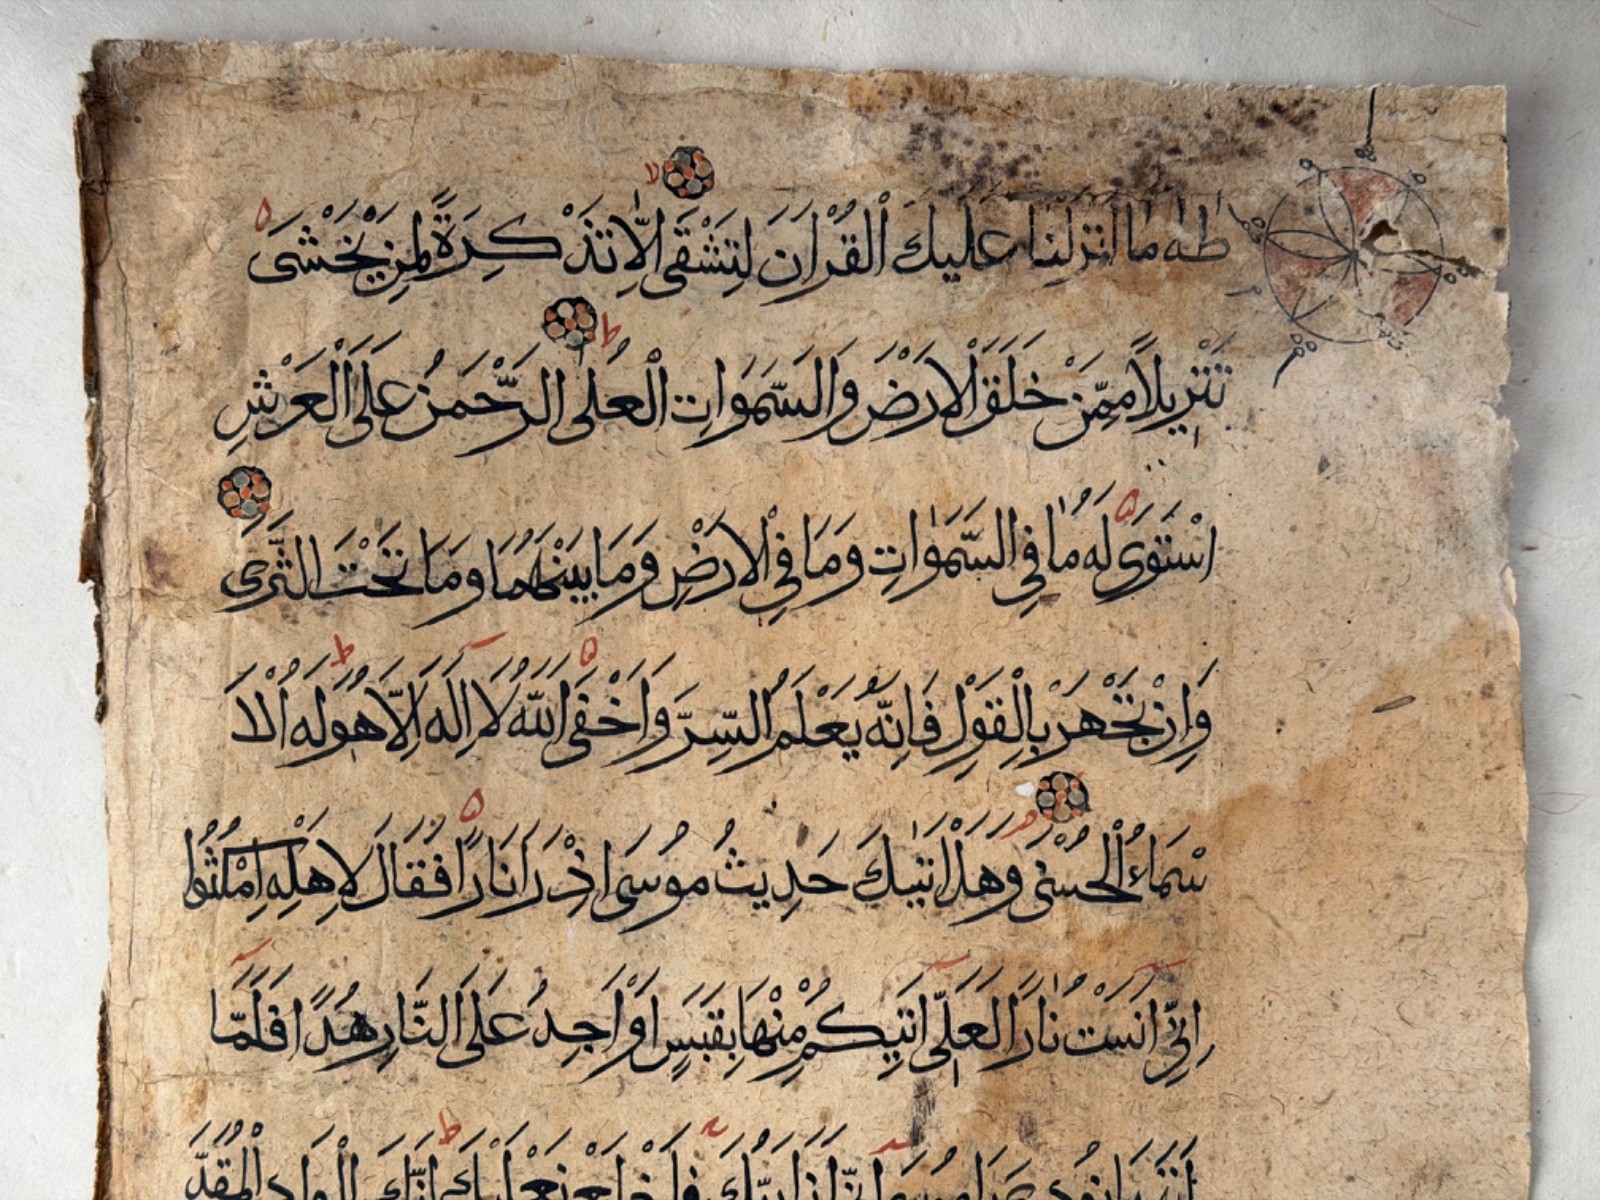 طه ما انزلنا عليك الْقُرْانَ لِتَشْقَى اِلَّا تَذْكِرَةً لِمَنْ يَخْشَى
تَنْزِيلًا مِمَّنْ خَلَقَ الْاَرْضَ وَالسَّمَوَاتِ الْعُلَى الرَّحْمَنُ عَلَى الْعَرْشِ
اسْتَوَى لَهُ مَا فِي السَّمَوَاتِ وَمَا فِي الْاَرْضِ وَمَا بَيْنَهُمَا وَمَا تَحْتَ الثَّرَى
وَاِنْ تَجْهَرْ بِالْقَوْلِ فَاِنَّهُ يَعْلَمُ السِّرَّ وَاَخْفَى اَللّٰهُ لَا اِلَهَ اِلَّا هُوَ لَهُ الْاَ
سْمَاءُ الْحُسْنَى وَهَلْ اَتَيكَ حَدِيثُ مُوسَى اِذْ رَاَ نَارًا فَقَالَ لِاَهْلِهِ امْكُثُوا
اِنِّي اَنَسْتُ نَارًا لَعَلِّي اَتِيكُمْ مِنْهَا بِقَبَسٍ اَوْ اَجِدُ عَلَى النَّارِ هُدًا فَلَمَّا
اَتَيهَا نُودِيَ يَا مُوسَى اِنِّي اَنَا رَبُّكَ فَاخْلَعْ نَعْلَيْكَ اِنَّكَ بِالْوَادِ الْمُقَدَّ